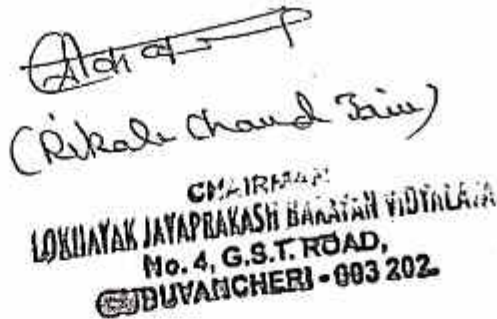 (Rikab Chand Jain)
CHAIRMAN
LOKNAYAK JAYAPRAKASH NARAYAN VIDYALAYA
No. 4, G.S.T. ROAD,
GUDUVANCHERI - 603 202.